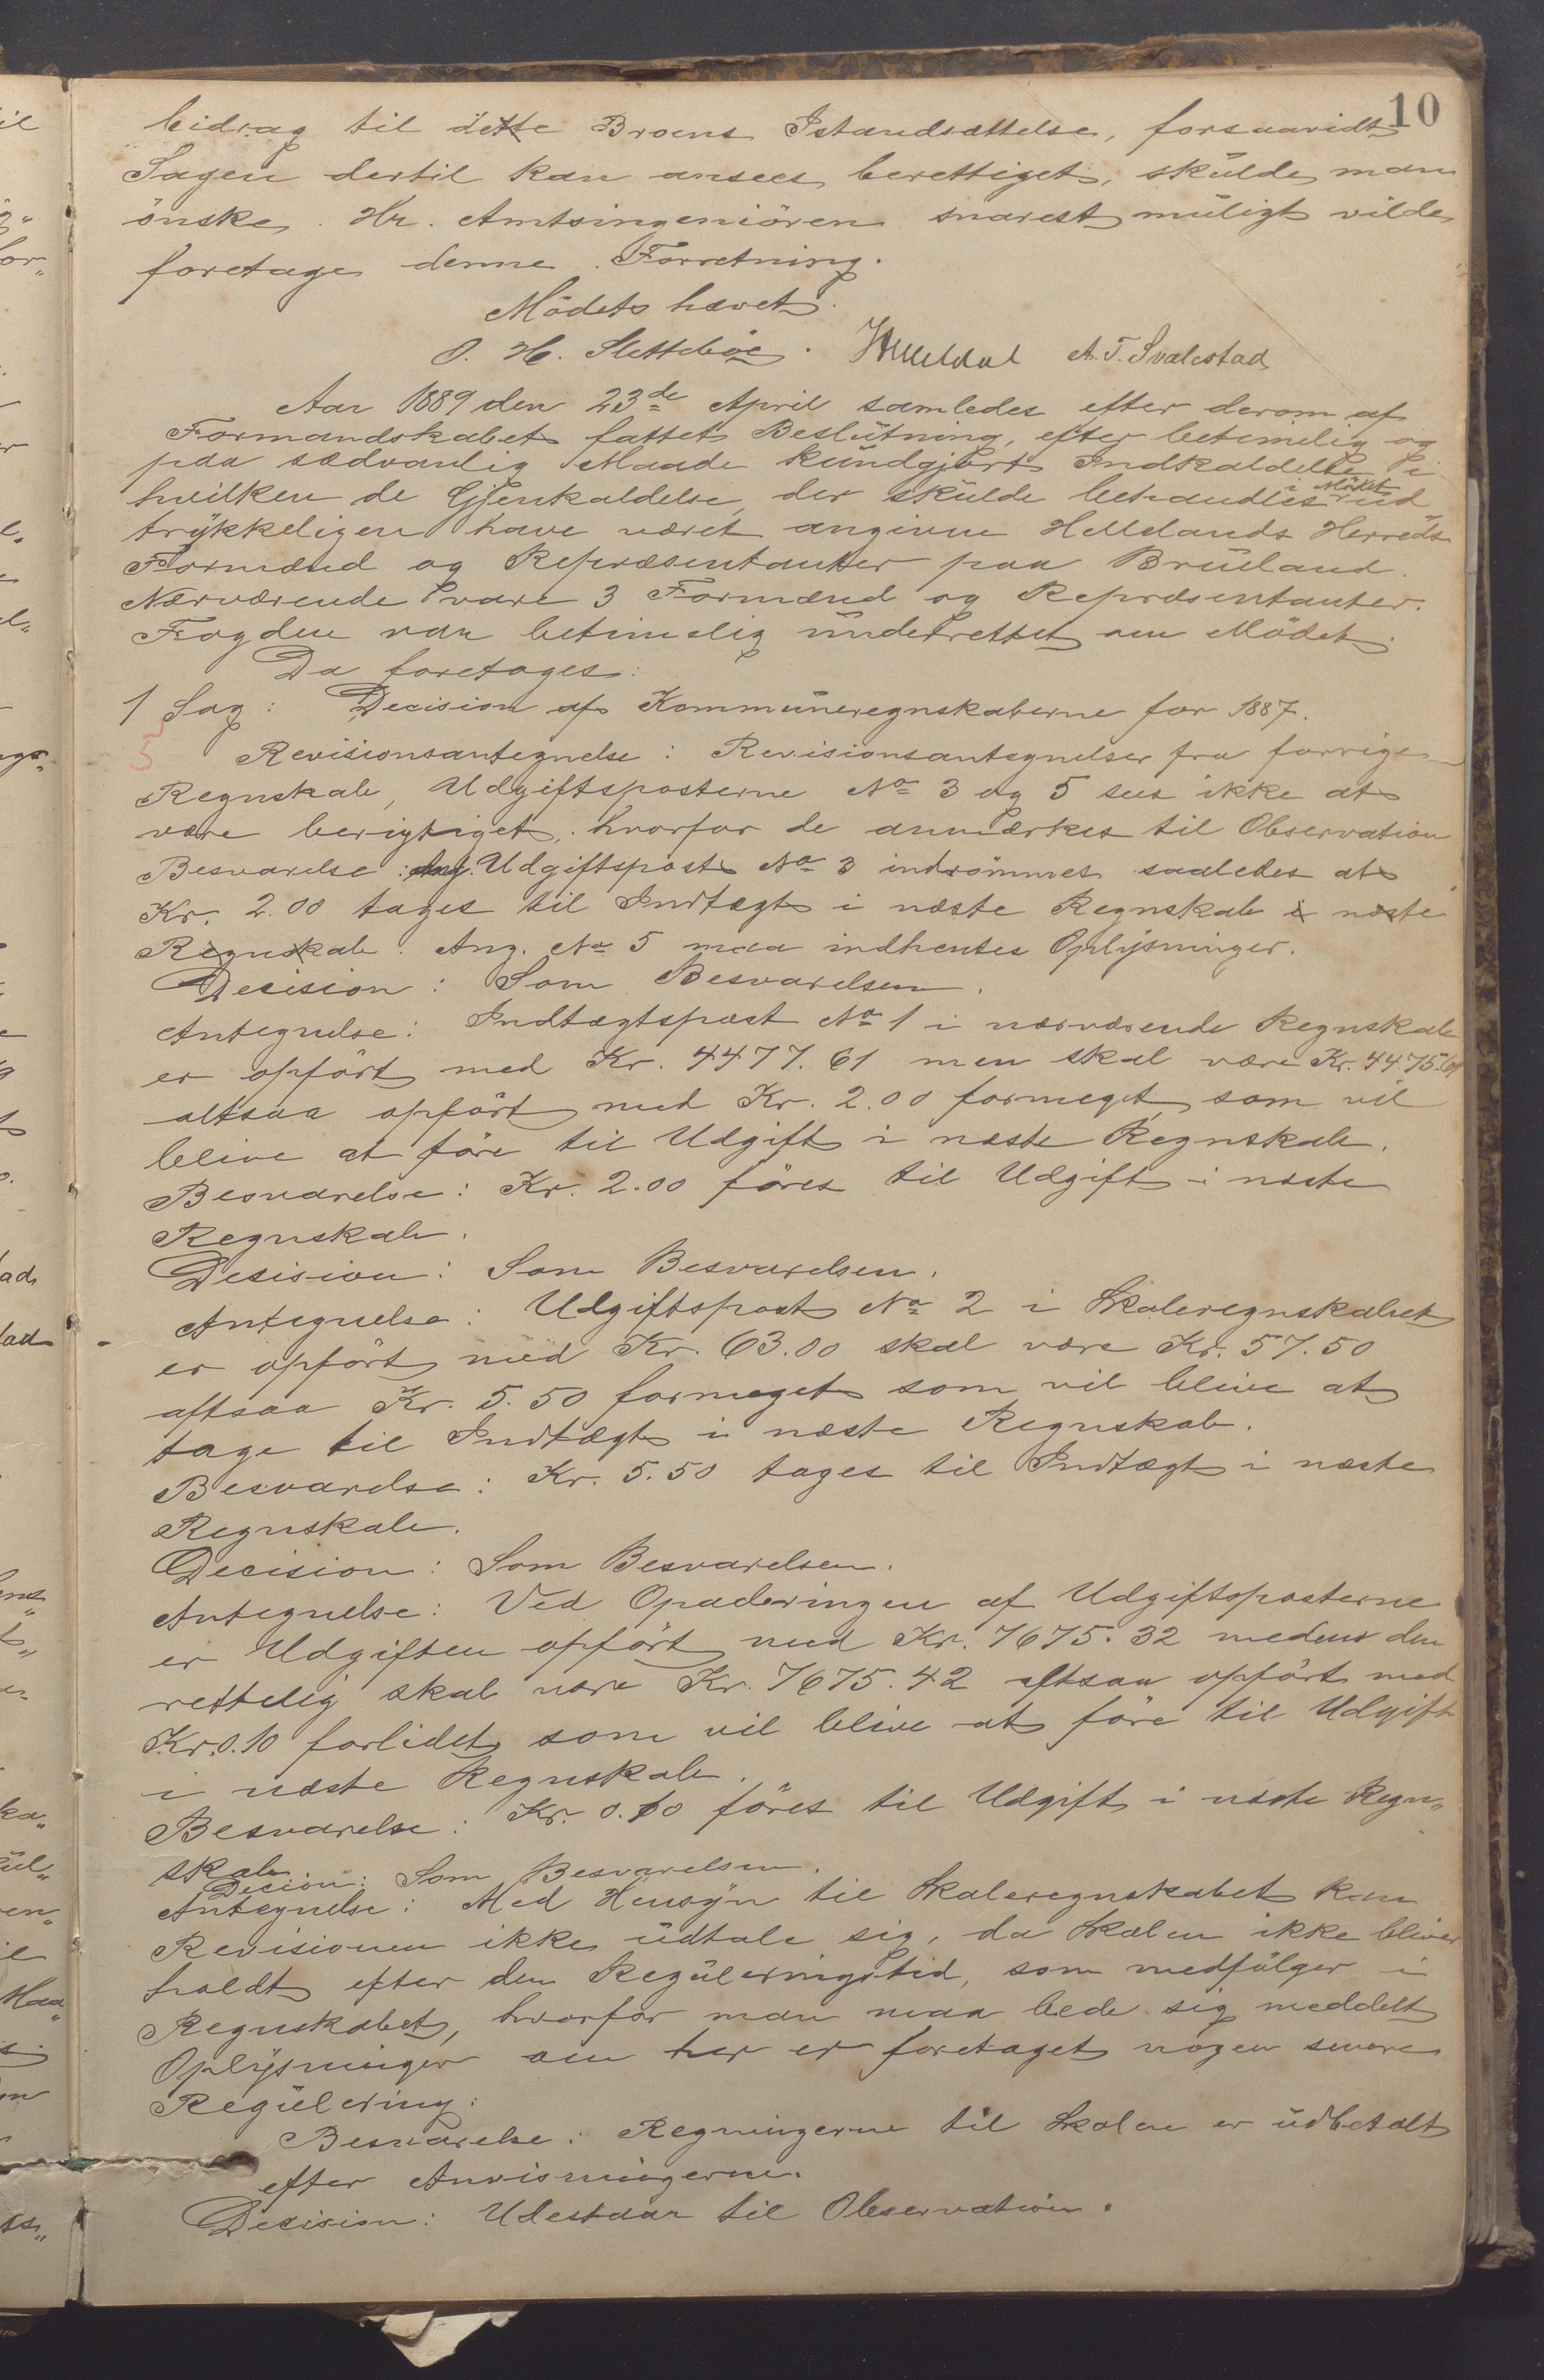 10
bidrag til dette Broens Istandsættelse, forsaavidt
Sagen dertil kan ansees berettiget, skulde man
ønske Hr. Amtsingeniören snarest muligt vilde
foretage denne Forretning.
Mödet hævet.
O. H. Slettebøe. A. T. Svalestad
Aar 1889 den 23de April samledes efter derom af
Formandskabet fattet Beslutning, efter betimelig og
paa sædvanlig Maade kundgjort Indkaldelse i
hvilken de Gjenkaldelse, der skulde behandles i Mødet ud
trykkeligen have været angivne Hellelands Herreds
Formænd og Repræsentanter paa Brueland.
Nærværende vare 3 Formænd og Repræsentanter.
Fogden var betimelig underrettet om Mödet.
Da foretages:
1 Sag: Decision af Kommuneregnskaberne for 1887.
5
Revisionsantegnelse: Revisionsantegnelser fra forrige
Regnskab, Udgiftsposterne No 3 og 5 sees ikke at
være berigtiget, hvorfor de anmærkes til Observation
Besvarelse: Ang. Udgiftspost No 3 indrömmes saaledes at
Kr. 2.00 tages til Indtægt i næste Regnskab i næste
Regnskab. Ang. No 5 maa indhentes Oplysninger.
Desision: Som Besvarelsen.
Antegnelse: Indtægtspost No 1 i nærværende Regnskab
er opfört med Kr. 4477.61 men skal være Kr. 4475.61
altsaa opfört med Kr. 2.00 formeget som vil
blive at före til Udgift i næste Regnskab.
Besvarelse: Kr. 2.00 föres til Udgift i næste
Regnskab.
Desision: Som Besvarelsen.
Antegnelse: Udgiftspost No 2 i Skoleregnskabet
er opfört med Kr. 63.00 skal være Kr. 57.50
altsaa Kr. 5.50 formeget som vil blive at
tage til Indtægt i næste Regnskab.
Besvarelse: Kr. 5.50 tages til Indtægt i næste
Regnskab.
Decision: Som Besvarelsen.
Antegnelse: Ved Opaderingen af Udgiftsposterne
er Udgiften opfört med Kr. 7675.32 medens den
rettelig skal være Kr. 7675.42 altsaa opfört med
Kr. 0.10 forlidet som vil blive at före til Udgift
i næste Regnskab.
Besvarelse: Kr. 0.10 föres til Udgift i næste Regn„
skab
Decion: Som Besvarelsen.
Antegnelse: Med Hensyn til Skoleregnskabet kan
Revisionen ikke udtale sig, da Skolen ikke bliver
holdt efter den Reguleringstid, som medfölger i
Regnskabet, hvorfor man maa bede sig meddelt
Oplysninger om her er foretaget nogen senere
Regulering.
Besvarelse: Regningerne til Skolen er udbetalt
efter Anvisningerne.
Decision: Udestaar til Observation.